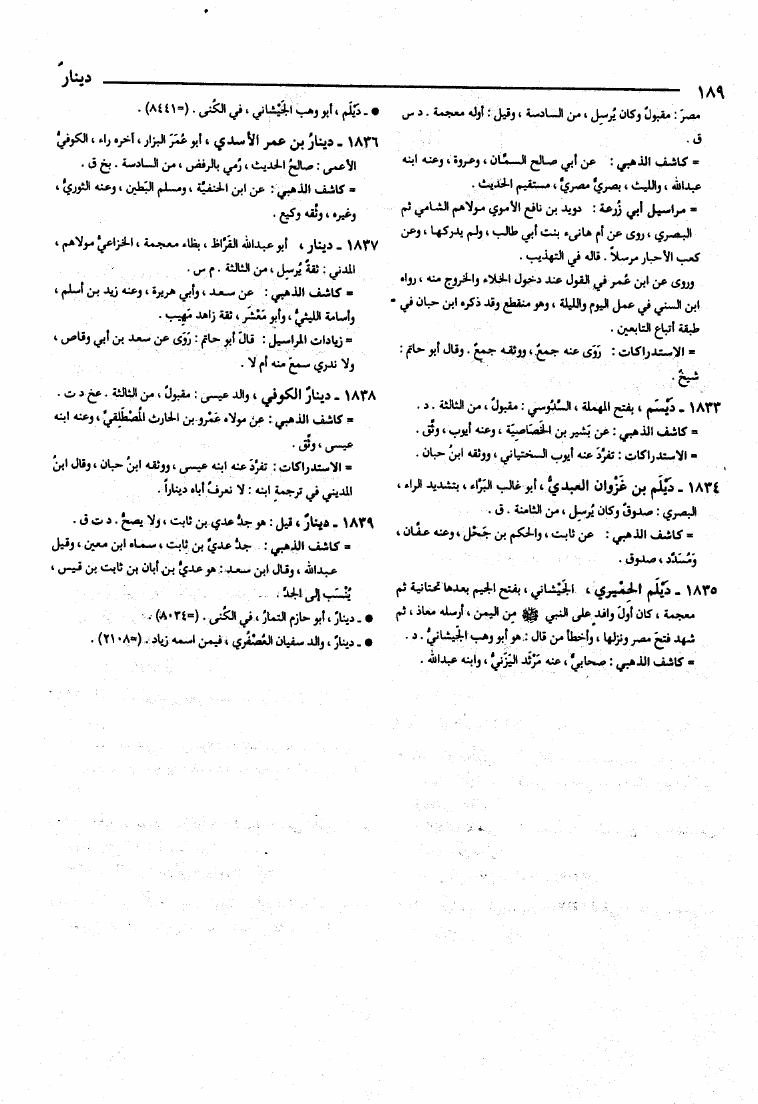 ١٨٩ دينارٌ
مصرَ : مقبولٌ وكان يُرسِل ، من السادسة ، وقيل : أوله معجمة . د س
ق .
= كاشف الذهبي : عن أبي صالح السمَّان ، وعروة ، وعنه ابنه
عبدالله ، والليث ، بصريٌّ مصريٌّ ، مستقيم الحديث .
= مراسيل أبي زُرعة : دويد بن نافع الأموي مولاهم الشامي ثم
البصري ، روى عن أم هانىء بنت أبي طالب ، ولم يدركها ، وعن
كعب الأحبار مرسلاً . قاله في التهذيب .
وروى عن ابن عُمر في القول عند دخول الخلاء والخروج منه ، رواه
ابن السني في عمل اليوم والليلة ، وهو منقطع وقد ذكره ابن حبان في
طبقة أتباع التابعين .
= الاستدراكات : رَوَى عنه جمعٌ ، ووثقه جمعٌ . وقال أبو حاتم :
شيخٌ .
١٨٣٣ - دَيْسَم ، بفتح المهملة ، السَّدُوسي : مقبولٌ ، من الثالثة . د .
= كاشف الذهبي : عن بَشير بن الخَصَاصِيَة ، وعنه أيوب ، وثِّق .
= الاستدراكات : تفرَّدَ عنه أيوب السختياني ، ووثقه ابنُ حبان .
١٨٣٤ - دَيْلَم بن غَزْوان العبديُّ ، أبو غالب البَرَّاء ، بتشديد الراء ،
البصري : صدوقٌ وكان يُرسِل ، من الثامنة . ق .
= كاشف الذهبي : عن ثابت ، والحكم بن جَحْل ، وعنه عفَّان ،
ومُسَدَّد ، صدوق .
١٨٣٥ - دَيْلَم الحِمْيري ، الجَيْشاني ، بفتح الجيم بعدها تحتانية ثم
معجمة ، كان أولَ وافدٍ على النبي ﷺ مِن اليمن ، أرسله معاذ ، ثم
شهد فتحَ مصر ونزلها ، وأخطأ من قال : هو أبو وهب الجَيشانيُّ . د .
= كاشف الذهبي : صحابيٌّ ، عنه مَرْثَد اليَزَنيُّ ، وابنه عبدالله .
● - دَيْلَم ، أبو وهب الجَيْشاني ، في الكُنى . (=٨٤٤١) .
١٨٣٦ - دينارُ بن عمر الأسدي ، أبو عُمَرَ البزار ، آخره راء ، الكوفيُّ
الأعمى : صالحُ الحديث ، رُمي بالرفض ، من السادسة . بخ ق .
= كاشف الذهبي : عن ابن الحنفيَّة ، ومسلم البَطين ، وعنه الثوريُّ ،
وغيره ، وثَّقه وكيع .
١٨٣٧ - دينار ، أبو عبدالله القَرَّاظ ، بظاء معجمة ، الخزاعيُّ مولاهم ،
المدني : ثقةٌ يُرسِل ، من الثالثة . م س .
= كاشف الذهبي : عن سعد ، وأبي هريرة ، وعنه زيد بن أسلم ،
وأسامة الليثيُّ ، وأبو مَعْشَر ، ثقة زاهد مَهِيب .
= زيادات المراسيل : قالَ أبو حاتم : رَوَى عن سعد بن أبي وقاص ،
ولا ندري سمعَ منه أم لا .
١٨٣٨ - دينارٌ الكوفي ، والد عيسى : مقبولٌ ، من الثالثة . عخ د ت .
= كاشف الذهبي : عن مولاه عَمْرو بن الحارث المُصْطَلِقيِّ ، وعنه ابنه
عيسى ، وثِّق .
= الاستدراكات : تفرَّدَ عنه ابنه عيسى ، ووثقه ابنُ حبان ، وقال ابنُ
المديني في ترجمةِ ابنه : لا نعرفُ أباه ديناراً .
١٨٣٩ - دينارٌ ، قيل : هو جدُّ عدي بن ثابت ، ولا يصحُّ . د ت ق .
= كاشف الذهبي : جدُّ عديِّ بن ثابت ، سماه ابن معين ، وقيل
عبدالله ، وقال ابن سعد : هو عديُّ بن أبان بن ثابت بن قيس ،
يُنْسَب إلى الجدِّ .
● - دينارٌ ، أبو حازم التمارُ ، في الكُنى . (=٨٠٣٤) .
● - دينارٌ ، والد سفيان العُصْفُري ، فيمن اسمه زياد . (=٢١٠٨) .